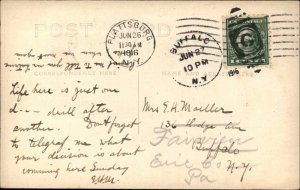 POST CARD
PLATTSBURG
JUN 26
11 30 AM
1916
N.Y.
BUFFALO
JUN 27
10 PM
N.Y.
Life here is just one
d-- drill after
another. Don't forget
to telegraf me what
your decision is about
coming here Sunday
Mrs G. H. Moeller
36 Hodge Ave
Buffalo
N.Y.
Erie Co
Pa